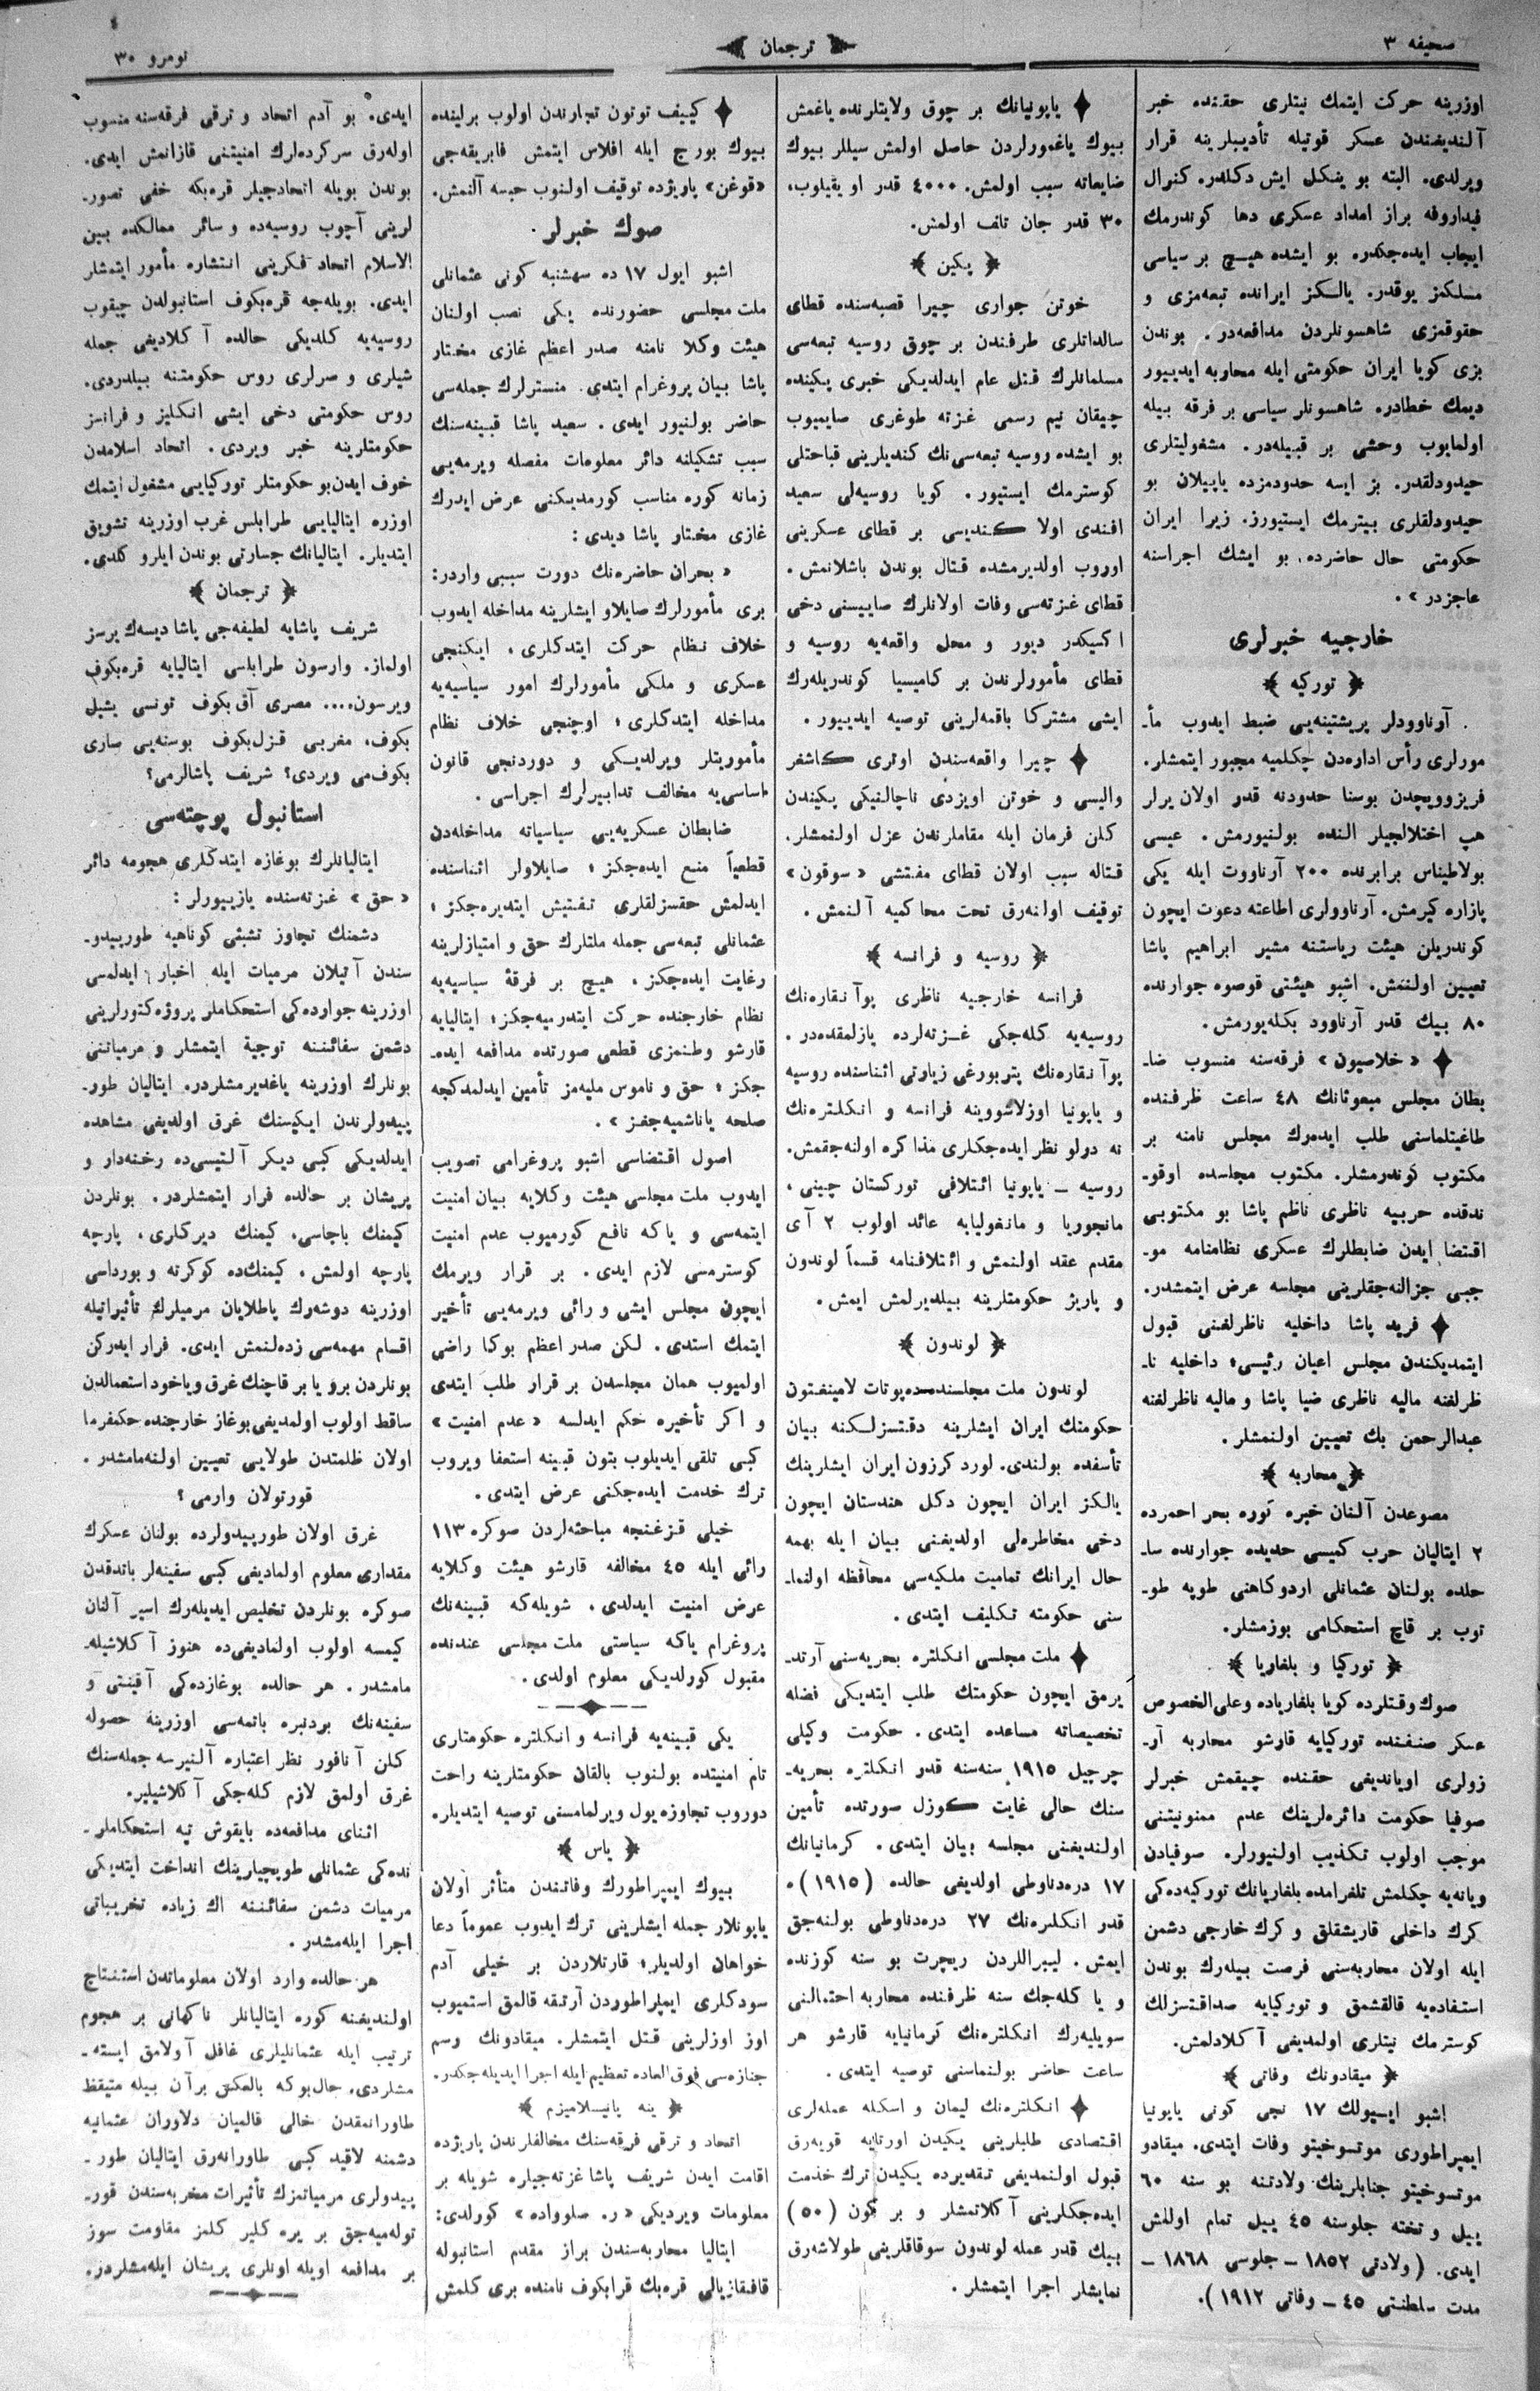 صحیفه ۳
ترجمان
نومرو ۳۰
اوزرینه حرکت ایتمك نیتلری حقنده خبر
آلندیغندن عسکر قوتیله تأدیبلرینه قرار
ویرلدی. البته بو ینکل ایش دکلدر. کنرال
فیداروفه براز امداد عسکری دها کوندرمك
ایجاب ایده‌جکدر. بو ایشده هیچ بر سیاسی
مسلکمز یوقدر. یالکز ایرانده تبعه‌مزی و
حقوقمزی شاهسونلردن مدافعه‌در. بوندن
بزی کویا ایران حکومتی ایله محاربه ایدییور
دیمك خطادر. شاهسونلر سیاسی بر فرقه بیله
اولمایوب وحشی بر قبیله‌در. مشغولیتلری
حیدودلقدر. بز ایسه حدودمزده یاپیلان بو
حیدودلقلری بیترمك ایستیورز. زیرا ایران
حکومتی حال حاضرده بو ایشك اجراسنه
عاجزدر».
خارجیه خبرلری
﴿ تورکیه ﴾
آرناوودلر پریشتینه‌یی ضبط ایدوب مأ-
مورلری رأس اداره‌دن چکلمیه مجبور ایتمشلر.
فریزوویچدن بوسنا حدودنه قدر اولان یرلر
هپ اختلالجیلر النده بولنیورمش. عیسی
بولاطیناس برابرنده ۲۰۰ آرناووت ایله یکی
پازاره کیرمش. آرناوولری اطاعته دعوت ایچون
کوندریلن هیئت ریاستنه مشیر ابراهیم پاشا
تعیین اولنمش. اشبو هیئتی قوصوه جوارنده
۸۰ بیك قدر آرناوود بکله‌یورمش.
✦ «خلاصیون» فرقه‌سنه منسوب ضا-
بطان مجلس مبعوثانك ٤۸ ساعت ظرفنده
طاغیتلماسنی طلب ایده‌رك مجلس نامنه بر
مکتوب کوندرمشلر. مکتوب مجلسده اوقو-
ندقده حربیه ناظری ناظم پاشا بو مکتوبی
اقتضا ایدن ضابطلرك عسکری نظامنامه مو-
جبی جزالنه‌جقلرینی مجلسه عرض ایتمشدر.
✦ فرید پاشا داخلیه ناظرلغنی قبول
ایتمدیکندن مجلس اعیان رئیسی؛ داخلیه نا-
ظرلغنه مالیه ناظری ضیا پاشا و مالیه ناظرلغنه
عبدالرحمن بك تعیین اولنمشلر.
﴿ محاربه ﴾
مصوعدن آلنان خبره کوره بحر احمرده
۲ ایتالیان حرب کمیسی حدیده جوارنده سا-
حلده بولنان عثمانلی اردوکاهنی طوپه طو-
توب بر قاچ استحکامی بوزمشلر.
﴿ تورکیا و بلغاریا ﴾
صوك وقتلرده کویا بلغاریاده وعلی الخصوص
عسکر صنفنده تورکیایه قارشو محاربه آر-
زولری اویاندیغی حقنده چیقمش خبرلر
صوفیا حکومت دائره‌لرینك عدم ممنونیتنی
موجب اولوب تکذیب اولنیورلر. صوفیادن
ویانه‌یه چکلمش تلغرامده بلغاریانك تورکیه‌ده‌کی
کرك داخلی قاریشقلق و کرك خارجی دشمن
ایله اولان محاربه‌سنی فرصت بیله‌رك بوندن
استفاده‌یه قالقشمق و تورکیایه صداقتسزلك
کوسترمك نیتلری اولمدیغی آکلادلمش.
﴿ میقادونك وفاتی ﴾
اشبو ایپولك ۱۷ نجی کونی یاپونیا
ایمپراطوری موتسوخیتو وفات ایتدی. میقادو
موتسوخیتو جنابلرینك ولادتنه بو سنه ٦۰
ییل و تخته جلوسنه ٤۵ ییل تمام اولمش
ایدی. (ولادتی ۱۸۵۲ – جلوسی ۱۸٦۸ –
مدت سلطنتی ٤۵ – وفاتی ۱۹۱۲).
✦ یاپونیانك بر چوق ولایتلرنده یاغمش
بیوك یاغمورلردن حاصل اولمش سیللر بیوك
ضایعاته سبب اولمش. ٤۰۰۰ قدر او ییقیلوب،
۳۰ قدر جان تلف اولمش.
﴿ پکین ﴾
خوتن جواری چیرا قصبه‌سنده قطای
سالداتلری طرفندن بر چوق روسیه تبعه‌سی
مسلمانلرك قتل عام ایدلدیکی خبری پکینده
چیقان نیم رسمی غزته طوغری صایمیوب
بو ایشده روسیه تبعه‌سی‌نك کندیلرینی قباحتلی
کوسترمك ایستیور. کویا روسیه‌لی سعید
افندی اولا کندیسی بر قطای عسکرینی
اوروب اولدیرمشده قتال بوندن باشلانمش.
قطای غزته‌سی وفات اولانلرك صاییسنی دخی
اکسیکدر دیور و محل واقعه‌یه روسیه و
قطای مأمورلرندن بر کامیسیا کوندریله‌رك
ایشی مشترکا باقمه‌لرینی توصیه ایدییور.
✦ چیرا واقعه‌سندن اوتری کاشغر
والیسی و خوتن اویزدی ناچالنیکی پکیندن
کلن فرمان ایله مقاملرندن عزل اولنمشلر.
قتاله سبب اولان قطای مفتشی «سوقون»
توقیف اولنه‌رق تحت محاکمیه آلنمش.
﴿ روسیه و فرانسه ﴾
فرانسه خارجیه ناظری پوآنقاره‌نك
روسیه‌یه کله‌جکی غزته‌لرده یازلمقده‌در.
پوآنقاره‌نك پتربورغی زیارتی اثناسنده روسیه
و یاپونیا اوزلاشووینه فرانسه و انکلتره‌نك
نه دورلو نظر ایده‌جکلری مذاکره اولنه‌جقمش.
روسیه – یاپونیا ائتلافی تورکستان چینی،
مانجوریا و مانغولیایه عائد اولوب ۲ آی
مقدم عقد اولنمش و ائتلافنامه قسماً لوندون
و پاریز حکومتلرینه بیلدیرلمش ایمش.
﴿ لوندون ﴾
لوندون ملت مجلسنده دپوتات لامینغتون
حکومتك ایران ایشلرینه دقتسزلکنه بیان
تأسفده بولندی. لورد کرزون ایران ایشلرینك
یالکز ایران ایچون دکل هندستان ایچون
دخی مخاطره‌لی اولدیغنی بیان ایله بهمه
حال ایرانك تمامیت ملکیه‌سی محافظه اولنما-
سنی حکومته تکلیف ایتدی.
✦ ملت مجلسی انکلتره بحریه‌سنی آرتد-
یرمق ایچون حکومتك طلب ایتدیکی فضله
تخصیصاته مساعده ایتدی. حکومت وکیلی
چرچیل ۱۹۱۵ سنه‌سنه قدر انکلتره بحریه-
سنك حالی غایت کوزل صورتده تأمین
اولندیغنی مجلسه بیان ایتدی. کرمانیانك
۱۷ دره‌دناوطی اولدیغی حالده (۱۹۱۵)ه
قدر انکلتره‌نك ۲۷ دره‌دناوطی بولنه‌جق
ایمش. لیبراللردن ریچرت بو سنه کوزنده
و یا کله‌جك سنه ظرفنده محاربه احتمالنی
سویلیه‌رك انکلتره‌نك کرمانیایه قارشو هر
ساعت حاضر بولنماسنی توصیه ایتدی.
✦ انکلتره‌نك لیمان و اسکله عمله‌لری
اقتصادی طلبلرینی یکیدن اورتایه قویه‌رق
قبول اولنمدیغی تقدیرده یکیدن ترك خدمت
ایده‌جکلرینی آکلاتمشلر و بر کون (۵۰)
بیك قدر عمله لوندون سوقاقلرینی طولاشه‌رق
نمایشلر اجرا ایتمشلر.
✦ کییف توتون تجارندن اولوب برلینده
بیوك بورج ایله افلاس ایتمش فابریقه‌جی
«قوغن» پاریژده توقیف اولنوب حبسه آلنمش.
صوك خبرلر
اشبو ایول ۱۷ ده سه‌شنبه کونی عثمانلی
ملت مجلسی حضورنده یکی نصب اولنان
هیئت وکلا نامنه صدر اعظم غازی مختار
پاشا بیان پروغرام ایتدی. منسترلرك جمله‌سی
حاضر بولنیور ایدی. سعید پاشا قبینه‌سنك
سبب تشکیلنه دائر معلومات مفصله ویرمه‌یی
زمانه کوره مناسب کورمدیکنی عرض ایدرك
غازی مختار پاشا دیدی:
«بحران حاضره‌نك دورت سببی واردر:
بری مأمورلرك صایلاو ایشلرینه مداخله ایدوب
خلاف نظام حرکت ایتدکلری، ایکنجی
عسکری و ملکی مأمورلرك امور سیاسیه‌یه
مداخله ایتدکلری؛ اوچنجی خلاف نظام
مأموریتلر ویرلدیکی و دوردنجی قانون
اساسی‌یه مخالف تدابیرلرك اجراسی.
ضابطان عسکریه‌یی سیاسیاته مداخله‌دن
قطعیاً منع ایده‌جکز؛ صایلاولر اثناسنده
ایدلمش حقسزلقلری تفتیش ایتدیره‌جکز؛
عثمانلی تبعه‌سی جمله ملتلرك حق و امتیازلرینه
رغایت ایده‌جکز، هیچ بر فرقهٔ سیاسیه‌یه
نظام خارجنده حرکت ایتدرمیه‌جکز؛ ایتالیایه
قارشو وطنمزی قطعی صورتده مدافعه ایده-
جکز؛ حق و ناموس ملیه‌مز تأمین ایدلمدکجه
صلحه یاناشمیه‌جغز».
اصول اقتضاسی اشبو پروغرامی تصویب
ایدوب ملت مجلسی هیئت وکلایه بیان امنیت
ایتمه‌سی و یاکه نافع کورمیوب عدم امنیت
کوسترمسی لازم ایدی. بر قرار ویرمك
ایچون مجلس ایشی و رائی ویرمه‌یی تأخیر
ایتمك استدی. لکن صدر اعظم بوکا راضی
اولمیوب همان مجلسدن بر قرار طلب ایتدی
و اکر تأخیره حکم ایدلسه «عدم امنیت»
کبی تلقی ایدیلوب بتون قبینه استعفا ویروب
ترك خدمت ایده‌جکنی عرض ایتدی.
خیلی قزغنجه مباحثه‌لردن صوکره ۱۱۳
رائی ایله ٤۵ مخالفه قارشو هیئت وکلایه
عرض امنیت ایدلدی. شویله‌که قبینه‌نك
پروغرام یاکه سیاستی ملت مجلسی عندنده
مقبول کورلدیکی معلوم اولدی.
یکی قبینه‌یه فرانسه و انکلتره حکومتاری
تام امنیتده بولنوب بالقان حکومتلرینه راحت
دوروب تجاوزه یول ویرلمامسنی توصیه ایتدیلر.
﴿ یاس ﴾
بیوك ایمپراطورك وفاتندن متأثر اولان
یاپونلار جمله ایشلرینی ترك ایدوب عموماً دعا
خواهان اولدیلر؛ قارتلاردن بر خیلی آدم
سودکلری ایمپراطوردن آرتیقه قالمق استمیوب
اوز اوزلرینی قتل ایتمشلر. میقادونك وسم
جنازه‌سی فوق العاده تعظیم ایله اجرا ایدیله جکدر.
﴿ ینه پانیسلامیزم ﴾
اتحاد و ترقی فرقه‌سنك مخالفلرندن پاریژده
اقامت ایدن شریف پاشا غزته‌جیلره شویله بر
معلومات ویردیکی «ر. صلوواده» کورلدی:
ایتالیا محاربه‌سندن براز مقدم استانبوله
قافقازیالی قره‌بك قرابکوف نامنده بری کلمش
ایدی. بو آدم اتحاد و ترقی فرقه‌سنه منسوب
اوله‌رق سرکرده‌لرك امنیتنی قازانمش ایدی.
بوندن بویله اتحادجیلر قره‌بکه خفی تصور-
لرینی آچوب روسیه‌ده و سائر ممالکده بین
الاسلام اتحاد فکرینی انتشاره مأمور ایتمشلر
ایدی. بویله‌جه قره‌بکوف استانبولدن چیقوب
روسیه‌یه کلدیکی حالده آکلادیغی جمله
شیلری و صرلری روس حکومتنه بیلدردی.
روس حکومتی دخی ایشی انکلیز و فرانسز
حکومتلرینه خبر ویردی. اتحاد اسلامدن
خوف ایدن بو حکومتلر تورکیایی مشغول ایتمك
اوزره ایتالیایی طرابلس غرب اوزرینه تشویق
ایتدیلر. ایتالیانك جسارتی بوندن ایلرو کلدی.
﴿ ترجمان ﴾
شریف پاشایه لطیفه‌جی پاشا دیسه‌ك یرسز
اولماز. وارسون طرابلسی ایتالیایه قره‌بکوف
ویرسون.... مصری آق بکوف تونسی یشیل
بکوف، مغربی قزل‌بکوف بوسنه‌یی ساری
بکوف‌می ویردی؟ شریف پاشالرمی؟
استانبول پوچته‌سی
ایتالیانلرك بوغازه ایتدکلری هجومه دائر
«حق» غزته‌سنده یازییورلر:
دشمنك تجاوز تشبثی کوناهیه طورپیدو-
سندن آتیلان مرمیات ایله اخبار ایدلمسی
اوزرینه جوارده‌کی استحکاملر پروژه‌کتورلرینی
دشمن سفائننه توجیه ایتمشلر و مرمیاتنی
بونلرك اوزرینه یاغدیرمشلردر. ایتالیان طور-
پیدولرندن ایکیسنك غرق اولدیغی مشاهده
ایدلدیکی کبی دیکر آلتیسی‌ده رخنه‌دار و
پریشان بر حالده فرار ایتمشلردر. بونلردن
کیمنك باجاسی، کیمنك دیرکلری، پارچه
پارچه اولمش، کیمنك‌ده کوکرته و بورداسی
اوزرینه دوشه‌رك پاطلایان مرمیلرك تأثیراتیله
اقسام مهمه‌سی زده‌لنمش ایدی. فرار ایدرکن
بونلردن برو یا بر قاچنك غرق ویاخود استعمالدن
ساقط اولوب اولمدیغی بوغاز خارجنده حکمفرما
اولان ظلمتدن طولایی تعیین اولنه‌مامشدر.
قورتولان وارمی؟
غرق اولان طورپیدولرده بولنان عسکرك
مقداری معلوم اولمادیغی کبی سفینه‌لر باتدقدن
صوکره بونلردن تخلیص ایدیله‌رك اسیر آلنان
کیمسه اولوب اولنمادیغی‌ده هنوز آکلاشیله-
مامشدر. هر حالده بوغازده‌کی آقینتی و
سفینه‌نك بردنبره باتمه‌سی اوزرینه حصوله
کلن آنافور نظر اعتباره آلنیرسه جمله‌سنك
غرق اولمق لازم کله‌جکی آکلاشیلیر.
اثنای مدافعه‌ده بایقوش تپه استحکاملر-
نده‌کی عثمانلی طوبجیلرینك انداخت ایتدیکی
مرمیات دشمن سفائننه اك زیاده تخریباتی
اجرا ایله‌مشدر.
هر حالده وارد اولان معلوماتدن استنتاج
اولندیغنه کوره ایتالیانلر ناکهانی بر هجوم
ترتیب ایله عثمانلیلری غافل آولامق ایسته-
مشلردی. حال بوکه بالعکس بر آن بیله متیقظ
طاورانمقدن خالی قالمیان دلاوران عثمانیه
دشمنه لاقید کبی طاورانه‌رق ایتالیان طور-
پیدولری مرمیاتمزك تأثیرات مخربه‌سندن قور-
توله‌میه‌جق بر یره کلیر کلمز مقاومت سوز
بر مدافعه اویله اونلری پریشان ایله‌مشلردر.